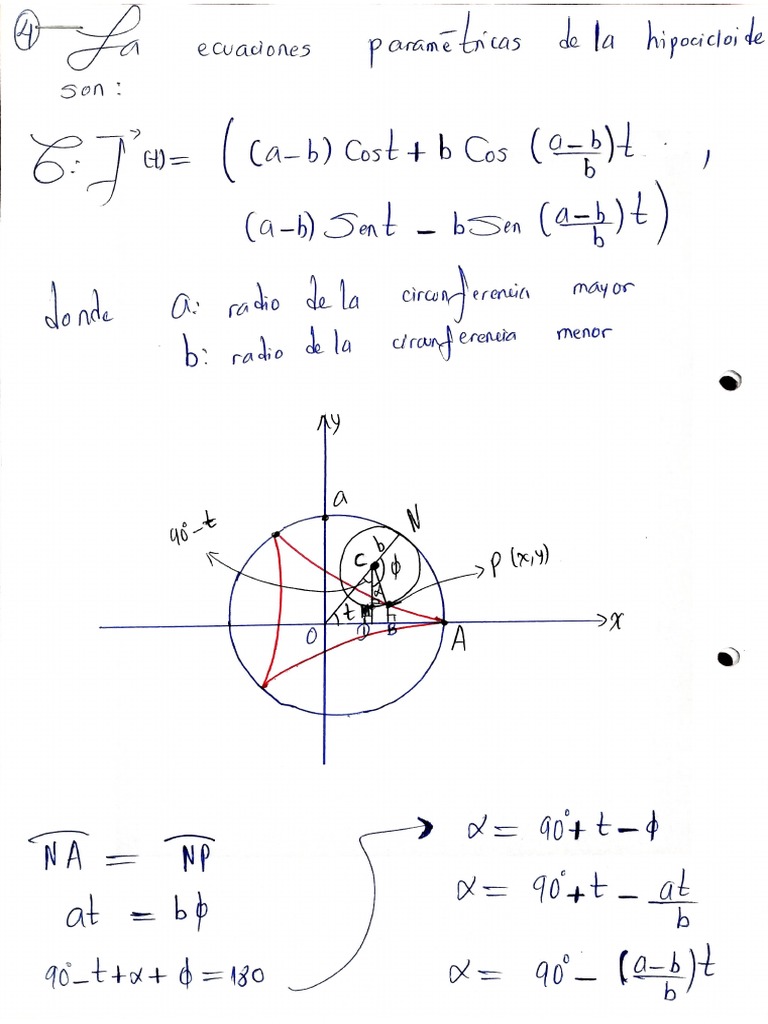 ④ La ecuaciones paramétricas de la hipocicloide
son:
C: f⃗(t) = ( (a-b) Cost + b Cos (a-b/b)t ,
(a-b) Sent - bSen (a-b/b)t )
donde a: radio de la circunferencia mayor
b: radio de la circunferencia menor
y
a
90°-t
N
b
C
ϕ
P (x,y)
α
t
O
D
B
A
x
NA = NP
at = bϕ
90°-t+α+ϕ = 180
α = 90°+t-ϕ
α = 90°+t - at/b
α = 90° - (a-b/b)t